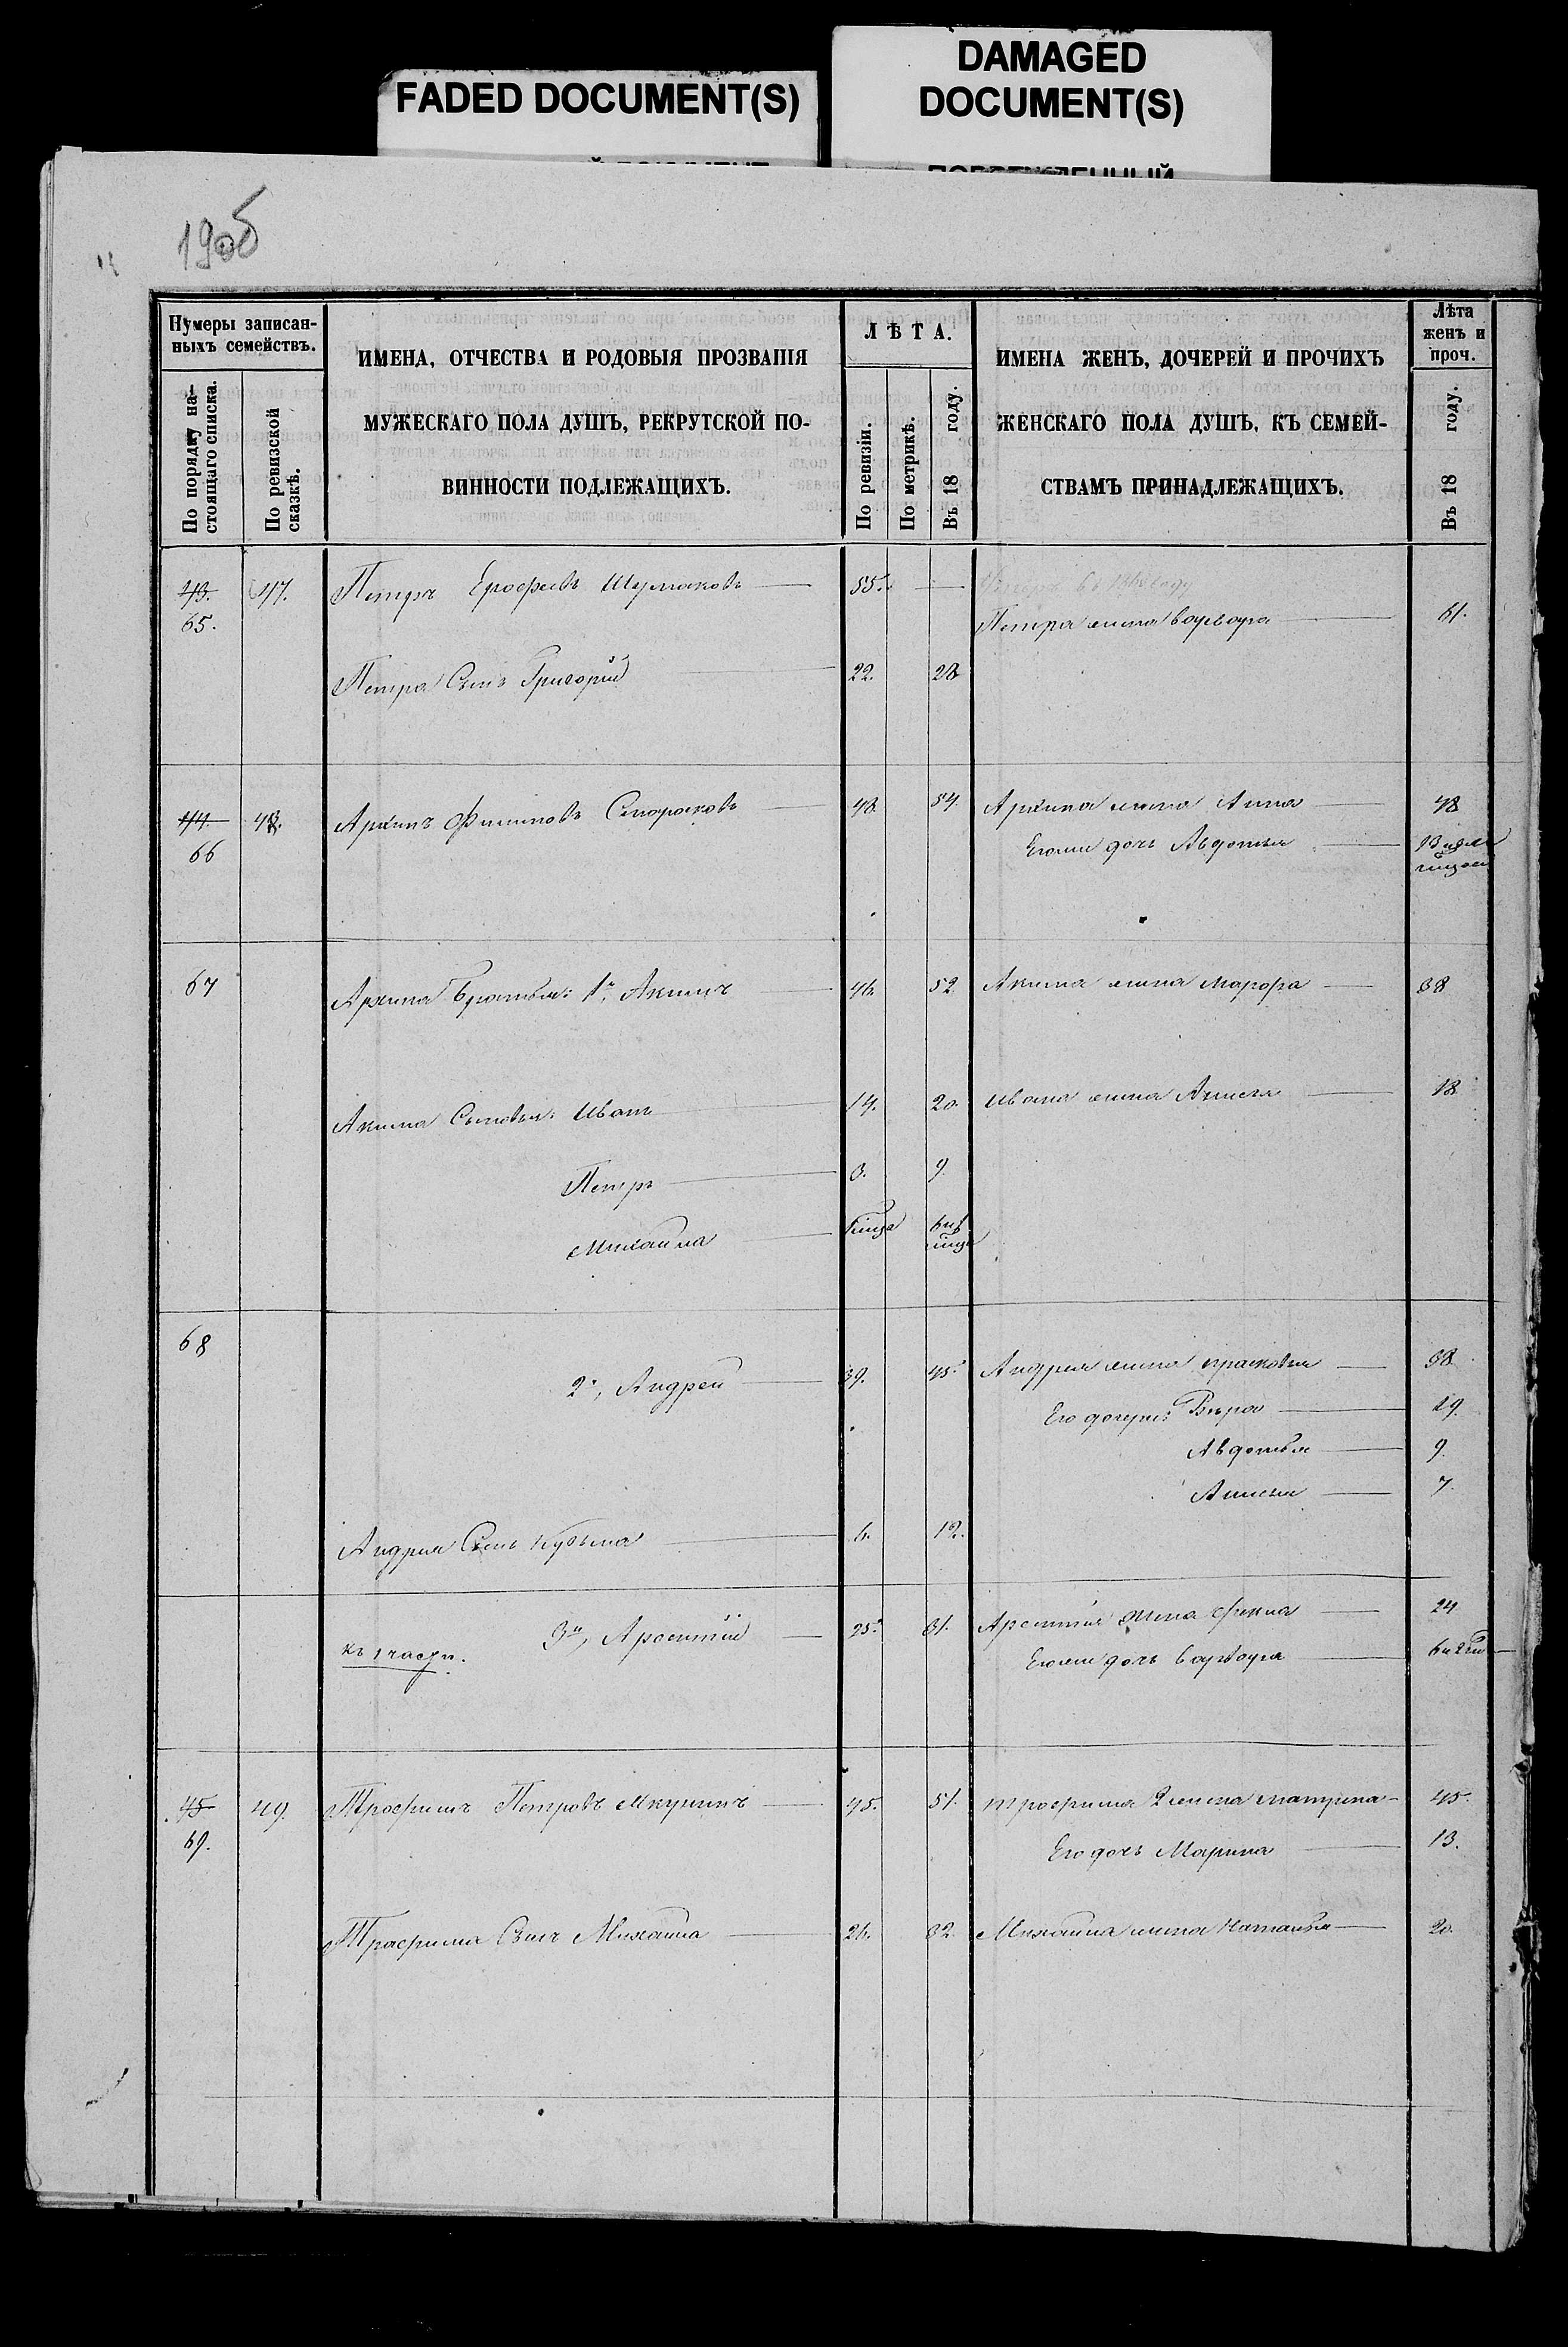 FADED DOCUMENT(S)
DAMAGED
DOCUMENT(S)
190б
Нумеры записан-
ныхъ семействъ.
По порядку на-
стоящаго списка.
По ревизской
сказкѣ.
ИМЕНА, ОТЧЕСТВА И РОДОВЫЯ ПРОЗВАНІЯ
МУЖЕСКАГО ПОЛА ДУШЪ, РЕКРУТСКОЙ ПО-
ВИННОСТИ ПОДЛЕЖАЩИХЪ.
ЛѢТА.
По ревизіи.
По метрикѣ.
Въ 18 году.
ИМЕНА ЖЕНЪ, ДОЧЕРЕЙ И ПРОЧИХЪ
ЖЕНСКАГО ПОЛА ДУШЪ, КЪ СЕМЕЙ-
СТВАМЪ ПРИНАДЛЕЖАЩИХЪ.
Лѣта
женъ и
проч.
Въ 18 году.
43. 47. Петръ Ерофеевъ Шумаковъ 55.
65. Петра жена варвара 61.
Петра Сынъ Григорій 22. 28
44. 48. Архипъ Филиповъ 48. 54. Архипа жена Анна 48
66 Егоже дочь Авдотья
67 Архипа братья: 1й, Акимъ 46. 52. Акима жена марфа 38
Акима Сыновья: Иванъ 14. 20. ивана жена Анисья 18
Петръ 3. 9.
Михаила
68 2й, Андрей 39. 45. Андрея жена прасковья 38
Его дочери: Вера 19.
Авдотья 9.
Анисья 7.
Андрея Сынъ кузьма 6. 12.
3й, Арсентий 25. 31. Арсентия жена фекла 24
къ 1 части. Егоже дочь варвара
45 49. Трофимъ Петровъ 45. 51. трофима 2 жена матрена 45.
69. Его дочь Марина 13.
Трофима Сынъ Михаила 26. 32. Михаила жена наталья 20.